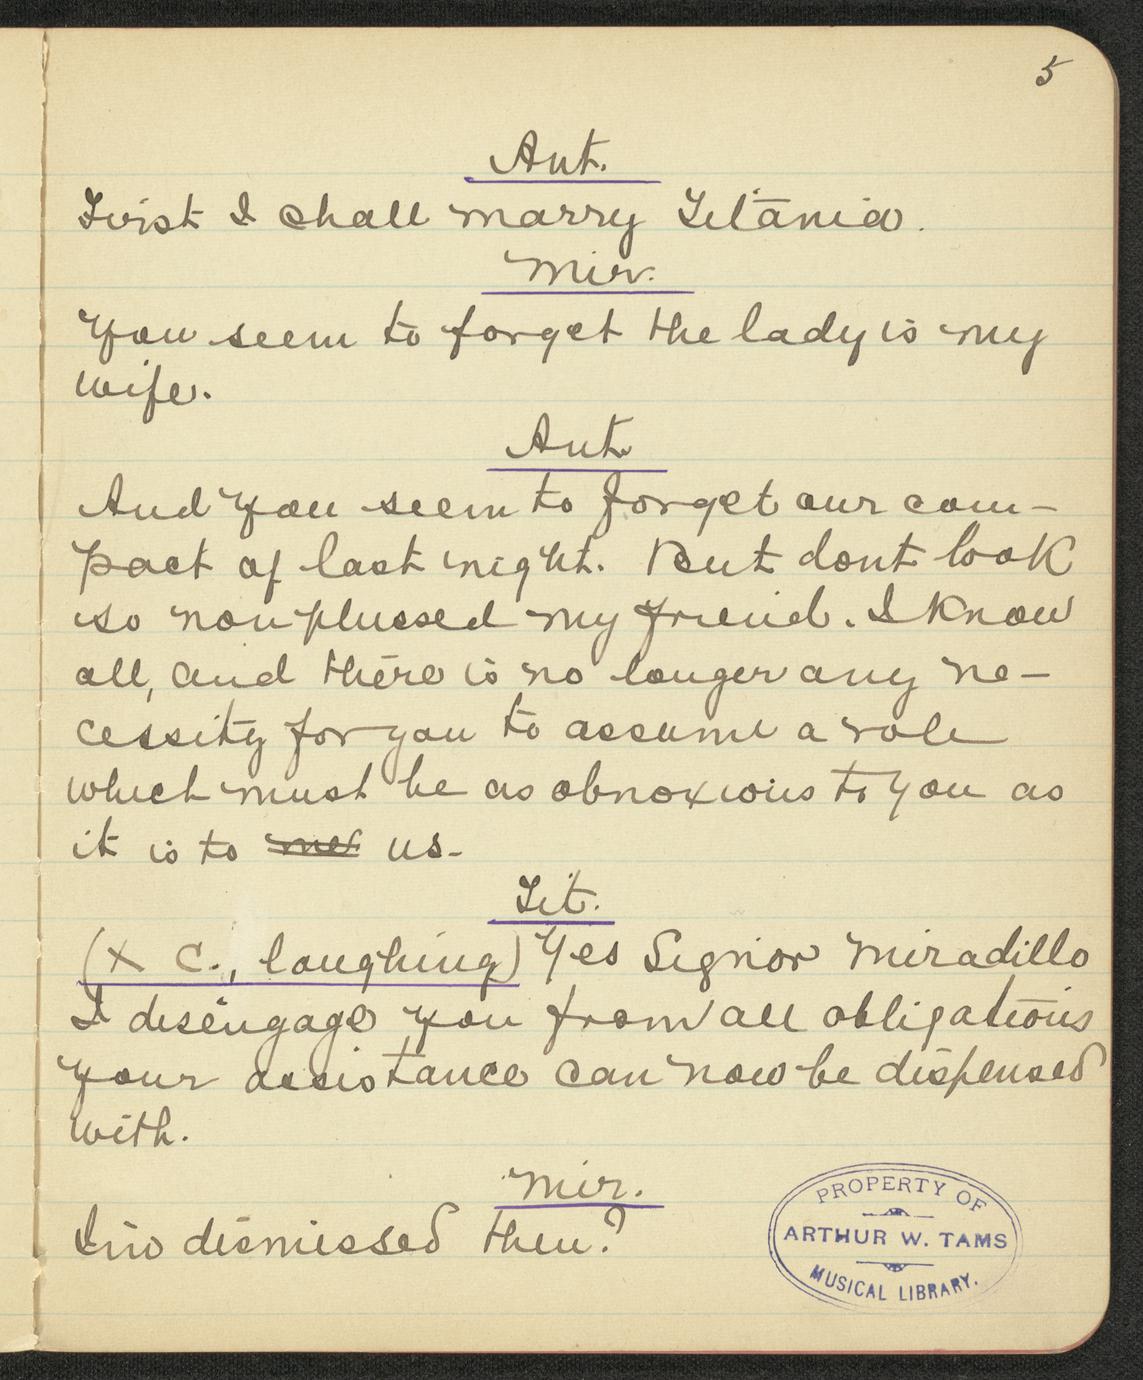 5
Ant.
First I shall marry Titania.
Mir.
You seem to forget the lady is my
wife.
Ant.
And you seem to forget our com-
pact of last night. But dont look
so nonplussed my friend. I know
all, and there is no longer any ne-
cessity for you to assume a role
which must be as obnoxious to you as
it is to me us-
Tit.
(X C., laughing) Yes Signor Miradillo
I disengage you from all obligations
your assistance can now be dispensed
with.
Mir.
I'm dismissed then?
PROPERTY OF
ARTHUR W. TAMS
MUSICAL LIBRARY.